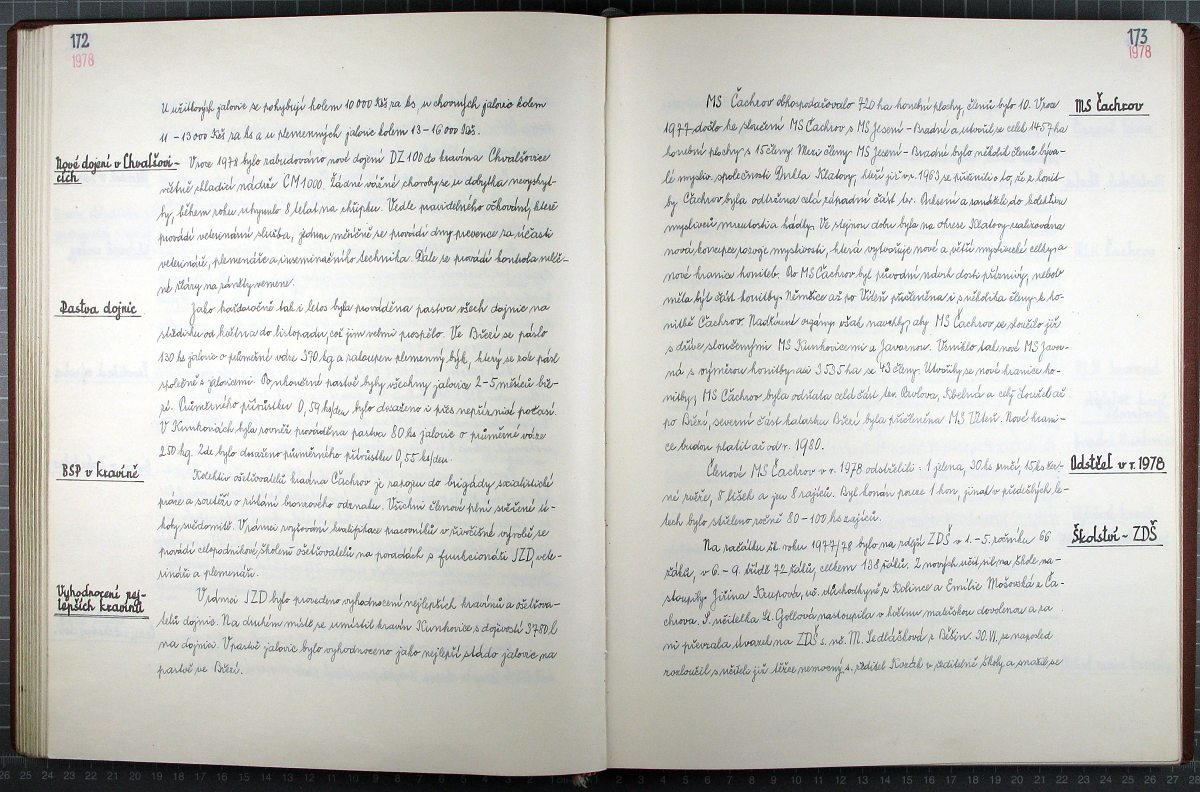 172
1978
U užitkových jalovic se pohybují kolem 10 000 Kčs za ks, u chovných jalovic kolem
11 - 13 000 Kčs za ks a u plemenných jalovic kolem 13 - 16 000 Kčs.
Nové dojení v Chvalšovi-
cích
V roce 1978 bylo zabudováno nové dojení DZ 100 do kravína Chvalšovice
včetně chladící nádrže CM 1000. Žádné vážné choroby se u dobytka nevyskyt-
ly, během roku uhynulo 8 telat na chřipku. Vedle pravidelného očkování, které
provádí veterinární služba, jednou měsíčně se provádí dny prevence za účasti
veterináře, plemenáře a inseminačního technika. Dále se provádí kontrola
na záněty vemene.
Pastva dojnic
Jako každoročně tak i letos byla prováděna pastva všech dojnic na
středisku od května do listopadu, což jim velmi prospělo. Ve Březí se páslo
130 ks jalovic o průměrné váze 370 kg a zakoupen plemenný býk, který se zde pásl
společně s jalovicemi. Po skončené pastvě byly všechny jalovice 2-5 měsíců bře-
zí. Průměrného přírůstku 0,59 kg/den bylo dosaženo i přes nepříznivé počasí.
V Kunkovicích byla rovněž prováděna pastva 80 ks jalovic o průměrné váze
250 kg. Zde bylo dosaženo průměrného přírůstku 0,55 kg/den.
BSP v kravíně
Kolektiv ošetřovatelů kravína Čachrov je zapojen do brigády socialistické
práce a soutěží o získání bronzového odznaku. Všichni členové plní svěřené ú-
koly svědomitě. V rámci zvyšování kvalifikace pracovníků v živočišné výrobě se
provádí celopodnikové školení ošetřovatelů na poradách s funkcionáři JZD, vete-
rináři a plemenáři.
Vyhodnocení nej-
lepších kravínů
V rámci JZD bylo provedeno vyhodnocení nejlepších kravínů a ošetřova-
telů dojnic. Na druhém místě se umístil kravín Kunkovice s dojivostí 3780 l
na dojnici. V pastvě jalovic bylo vyhodnoceno jako nejlepší stádo jalovic na
pastvě ve Březí.
173
1978
MS Čachrov
MS Čachrov obhospodařovalo 720 ha honební plochy, členů bylo 10. V roce
1977 došlo ke sloučení MS Čachrov s MS Jesení - Bradné a utvořil se celek 1457 ha
honební plochy s 15 členy. Mezi členy MS Jesení - Bradné bylo několik členů býva-
lé mysliv. společnosti Dukla Klatovy, kteří již v r. 1963 se přičinili o to, že z honit-
by Čachrov byla odtržena celá západní část
myslivců nevraživost a hádky. Ve stejnou dobu byla na okrese Klatovy realizována
nová koncepce rozvoje myslivosti, která vytvořuje nové a větší myslivecké celky a
nové hranice honiteb. Pro MS Čachrov byl původní návrh dosti příznivý, neboť
měla být část honitby Němčice až po Villerů přičleněna i s několika členy k ho-
nitbě Čachrov. Nadřízené orgány však navrhly, aby MS Čachrov se sloučilo již
s dříve sloučenými MS Kunkovicemi a Javornou. Vzniklo tak nové MS Javor-
ná s výměrou honitby asi 3535 ha se 43 členy. Utvořily se nové hranice ho-
nitby, MS Čachrov byla odňata celá část, Kbelná a celý
po Březí, severní část katastru Březí byla přičleněna MS Úterí. Nové hrani-
ce budou platit až od r. 1980.
Odstřel v r. 1978
Členové MS Čachrov v r. 1978 odstřelili: 1 jelena, 30 ks srnčí, 15 ks čer-
né zvěře, 8 lišek a jen 8 zajíců. Byl konán pouze 1 hon, jinak v předešlých le-
tech bylo střeleno ročně 80 - 100 ks zajíců.
Školství - ZDŠ
Na začátku šk. roku 1977/78 bylo na zdejší ZDŠ v 1. - 5. ročníku 66
žáků, v 6. - 9. třídě 72 žáků, celkem 138 žáků. 2 nových učitelů na škole na-
stoupily: Jiřina Krupová, uč. důchodkyně z Kolince a Emílie Mošovská z Ča-
chrova. S. učitelka Gollová nastoupila v květnu mateřskou dovolenou a za
ni převzala úvazek na ZDŠ s. uč. M. Sedláčková z Běšin. 30. VI. se naposled
rozloučil s učiteli již těžce nemocný s. ředitel Kozák v ředitelně školy a snažil se